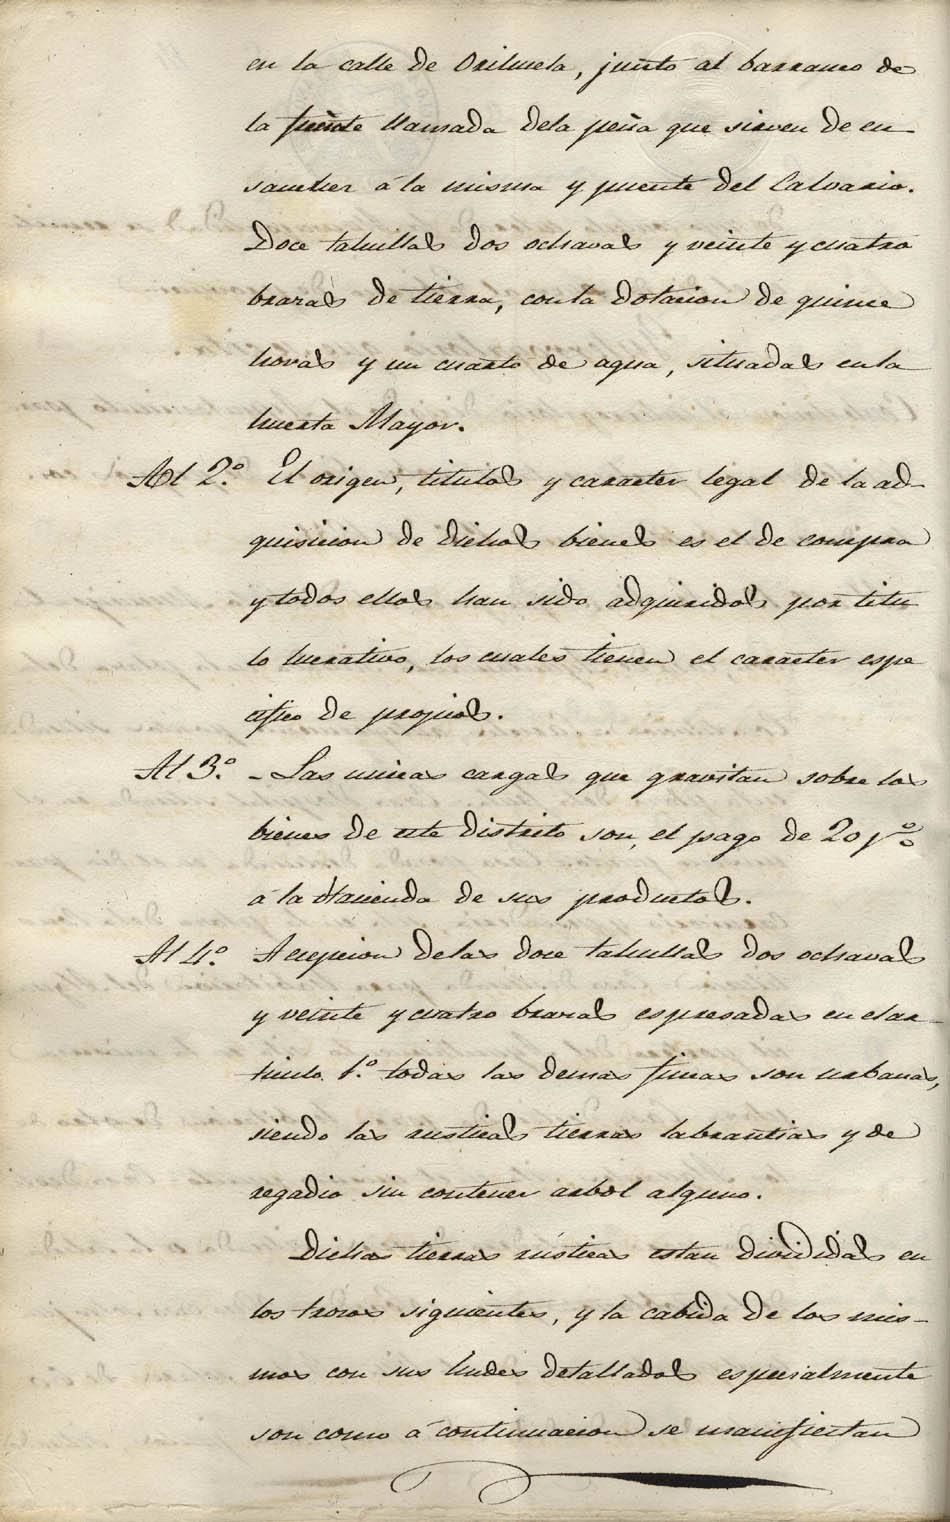 en la calle de Orihuela, junto al barranco de
la fuente llamada dela peña que sirven de en-
sancher á la misma y puente del Calvario.
Doce tahullas dos ochavas y veinte y cuatro
brazas de tierra, con la dotacion de quince
horas y un cuarto de agua, situadas en la
huerta Mayor.
Al 2.º El origen, titulos y caracter legal de la ad-
quisicion de dichos bienes es el de compra
y todos ellos han sido adquiridos por titu
lo lucrativo, los cuales tienen el caracter espe
cifico de propios.
Al 3.º - Las unicas cargas que gravitan sobre los
bienes de este distrito son, el pago de 20 pº%
á la Hacienda de sus productos.
Al 4.º A cepcion delas doce tahullas dos ochavas
y veinte y cuatro brazas espresadas en el ar-
ticulo 1.º todas las demas fincas son urbanas,
siendo las rusticas tierras labrantias y de
regadio sin contener arbol alguno.
Dichas tierras rústicas estan divididas en
los trozos siguientes, y la cabida de los mis-
mos con sus lindes detallados especialmente
son como á continuacion se manifiestan